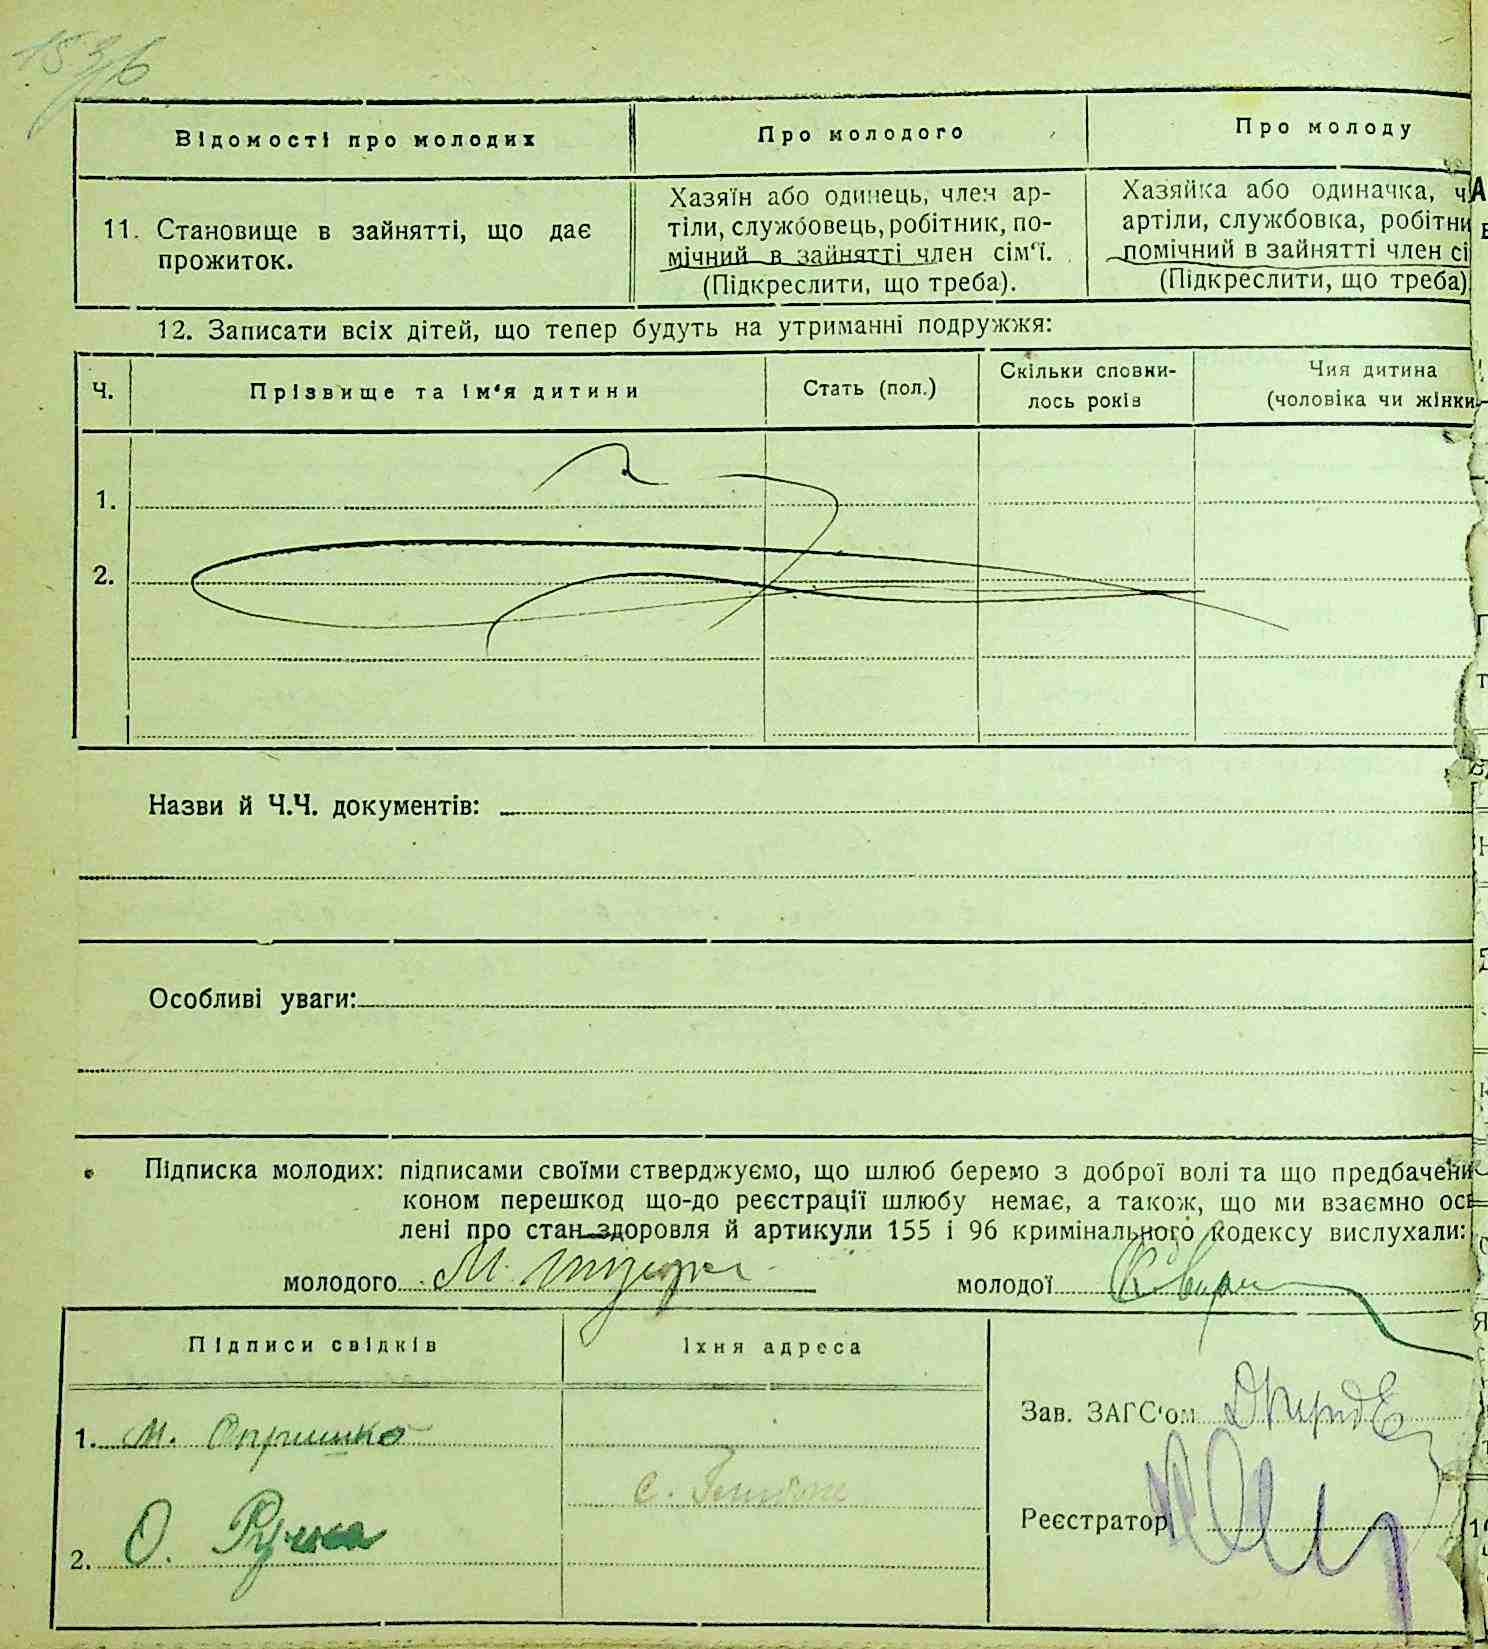 Відомості про молодих
Про молодого
Про молоду
11. Становище в зайнятті, що дає
прожиток.
Хазяїн або одинець, член ар-
тіли, службовець, робітник, по-
мічний в зайнятті член сім'ї.
(Підкреслити, що треба).
Хазяйка або одиначка, ч
артіли, службовка, робітни
помічний в зайнятті член сі
(Підкреслити, що треба)
12. Записати всіх дітей, що тепер будуть на утриманні подружжя:
Ч.
Прізвище та ім'я дитини
Стать (пол.)
Скільки сповни-
лось років
Чия дитина
(чоловіка чи жінки
1.
2.
Назви й Ч.Ч. документів:
Особливі уваги:
Підписка молодих: підписами своїми стверджуємо, що шлюб беремо з доброї волі та що предбачени
коном перешкод що-до реєстрації шлюбу немає, а також, що ми взаємно осв
лені про стан здоровля й артикули 155 і 96 кримінального кодексу вислухали:
молодого М.
молодої
Підписи свідків
Їхня адреса
1. М. Опришко
с.
2. О. Ручка
Зав. ЗАГС'ом
Реєстратор